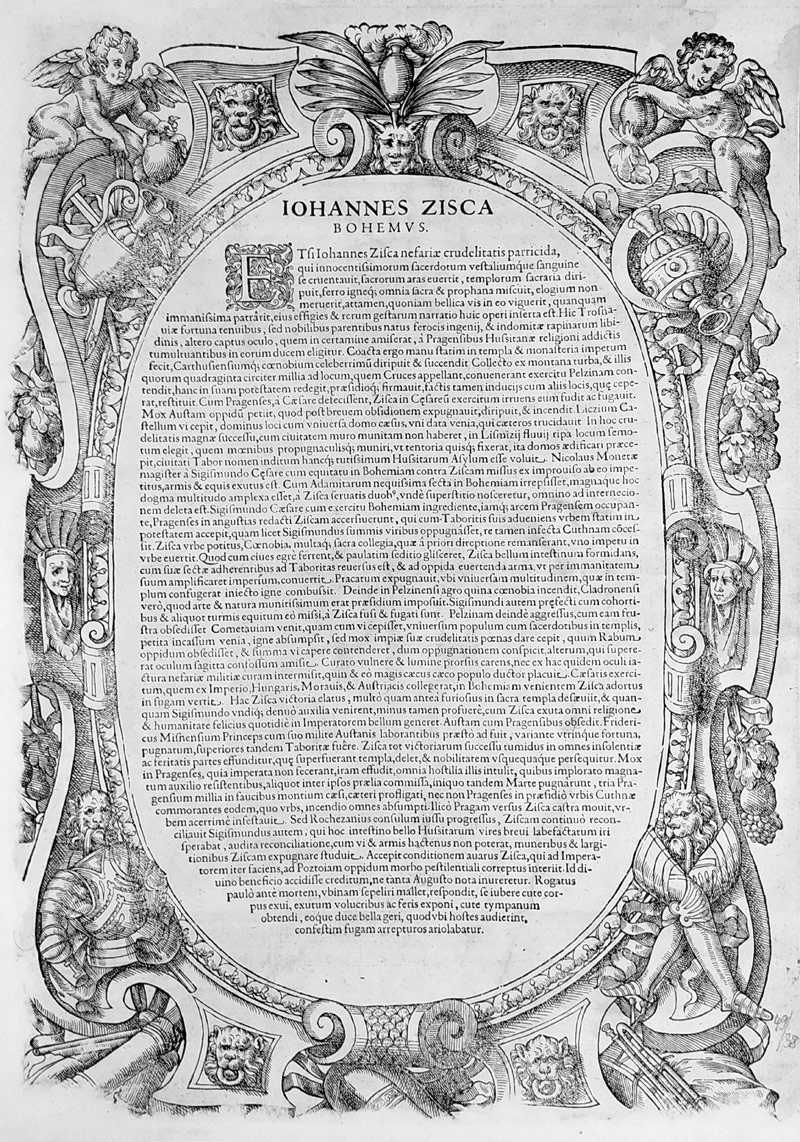 IOHANNES ZISCA
BOHEMVS.
ETsi Iohannes Zisca nefariæ crudelitatis parricida,
qui innocentissimorum sacerdotum vestaliumque sanguine
se cruentauit, sacrorum aras euertit, templorum sacraria diri-
puit, ferro igneq; omnia sacra & prophana miscuit, elogium non
meruerit, attamen, quoniam bellica vis in eo viguerit, quanquam
immanissima patrarit, eius effigies & rerum gestarum narratio huic operi inserta est. Hic Trosna-
uiæ fortuna tenuibus, sed nobilibus parentibus natus ferocis ingenij, & indomitæ rapinarum libi-
dinis, altero captus oculo, quem in certamine amiserat, à Pragensibus Hussitanæ religioni addictis
tumultuantibus in eorum ducem eligitur. Coacta ergo manu statim in templa & monasteria impetum
fecit, Carthusiensiumq; cœnobium celeberrimū diripuit & succendit. Collecto ex montana turba, & illis
quorum quadraginta circiter millia ad locum, quem Cruces appellant, conuenerant exercitu Pelzinam con-
tendit, hanc in suam potestatem redegit, præsidioq; firmauit, factis tamen inducijs cum alijs locis, quę cepe-
rat, restituit. Cum Pragenses, à Cæsare defecissent, Zisca in Cęsareū exercitum irruens eum fudit ac fugauit.
Mox Austam oppidū petijt, quod post breuem obsidionem expugnauit, diripuit, & incendit. Liczium Ca-
stellum vi cepit, dominus loci cum vniuersa domo cæsus, vni data venia, qui cæteros trucidauit. In hoc cru-
delitatis magnæ successu, cum ciuitatem muro munitam non haberet, in Lismizij fluuij ripa locum semo-
tum elegit, quem mœnibus propugnaculisq; muniri, vt tentoria quisq; fixerat, ita domos ædificari præce-
pit, ciuitati Tabor nomen inditum hancq; tutissimum Hussitarum Asylum esse voluit. Nicolaus Monetæ
magister à Sigismundo Cęsare cum equitatu in Bohemiam contra Ziscam missus ex improuiso ab eo impe-
titus, armis & equis exutus est. Cum Adamitarum nequissima secta in Bohemiam irrepsisset, magnaque hoc
dogma multitudo amplexa esset, à Zisca seruatis duobꝰ, vndè superstitio nosceretur, omnino ad internecio-
nem deleta est. Sigismundo Cæsare cum exercitu Bohemiam ingrediente, iamq; arcem Pragensem occupan-
te, Pragenses in angustias redacti Ziscam accersiuerunt, qui cum Taboritis suis adueniens vrbem statim in
potestatem accepit, quam licet Sigismundus summis viribus oppugnasset, re tamen infecta Cuthnam cōces-
sit. Zisca vrbe potitus, Cœnobia, multaq; sacra collegia, quæ à priori direptione remanserant, vno impetu in
vrbe euertit. Quod cum ciues egrè ferrent, & paulatim seditio glisceret, Zisca bellum intestinum formidans,
cum suæ sectæ adherentibus ad Taboritas reuersus est, & ad oppida euertenda arma, vt per immanitatem
suum amplificaret imperium, conuertit. Pracatum expugnauit, vbi vniuersam multitudinem, quæ in tem-
plum confugerat iniecto igne combussit. Deinde in Pelzinensi agro quina cœnobia incendit, Cladronensi
verò, quod arte & natura munitissimum erat præsidium imposuit. Sigismundi autem pręfecti cum cohorti-
bus & aliquot turmis equitum eò missi, à Zisca fusi & fugati sunt. Pelzinam deindè aggressus, cum eam fru-
stra obsedisset. Cometauiam venit, quam cum vi cepisset, vniuersum populum cum sacerdotibus in templis,
petita incassum venia, igne absumpsit, sed mox impiæ suæ crudelitatis pœnas dare cepit, quum Rabum
oppidum obsedisset, & summa vi capere contenderet, dum oppugnationem conspicit, alterum, qui supere-
rat oculum sagitta confossum amisit. Curato vulnere & lumine prorsus carens, nec ex hac quidem oculi ia-
ctura nefariæ militiæ curam intermisit, quin & eò magis cæcus cæco populo ductor placuit. Cæsaris exerci-
tum, quem ex Imperio, Hungaris, Morauis, & Austriacis collegerat, in Bohemiam venientem Zisca adortus
in fugam vertit. Hac Zisca victoria elatus, multò quam anteà furiosius in sacra templa desæuit, & quan-
quam Sigismundo vndiq; denuò auxilia venirent, minus tamen profuerē, cum Zisca exuta omni religione
& humanitate felicius quotidiè in Imperatorem bellum generet. Austam cum Pragensibus obsedit. Frideri-
cus Misnensium Princeps cum suo milite Austanis laborantibus præstò ad fuit, variante vtrinque fortuna,
pugnatum, superiores tandem Taboritæ fuêre. Zisca tot victoriarum successu tumidus in omnes insolentiæ
ac feritatis partes effunditur, quę superfuerant templa, delet, & nobilitatem vsquequaque persequitur. Mox
in Pragenses, quia imperata non fecerant, iram effudit, omnia hostilia illis intulit, quibus implorato magna-
tum auxilio resistentibus, aliquot inter ipsos prælia commissa, iniquo tandem Marte pugnarunt, tria Pra-
gensium millia in faucibus montium cæsi, cæteri profligati, nec non Pragenses in præsidiò vrbis Cuthnæ
commorantes eodem, quo vrbs, incendio omnes absumpti. Illicò Pragam versus Zisca castra mouit, vr-
bem acerrimè infestauit. Sed Rochezanius consulum iussu progressus, Ziscam continuò recon-
ciliauit Sigismundus autem, qui hoc intestino bello Hussitarum vires breui labefactatum iri
sperabat, audita reconciliatione, cum vi & armis hactenus non poterat, muneribus & largi-
tionibus Ziscam expugnare studuit. Accepit conditionem auarus Zisca, qui ad Impera-
torem iter faciens, ad Poztoiam oppidum morbo pestilentiali correptus interijt. Id di-
uino beneficio accidisse creditum, ne tanta Augusto nota inureretur. Rogatus
paulò antè mortem, vbinam sepeliri mallet, respondit, se iubere cute cor-
pus exui, exutum volucribus ac feris exponi, cute tympanum
obtendi, eoque duce bella geri, quod vbi hostes audierint,
confestim fugam arrepturos ariolabatur.
49/38